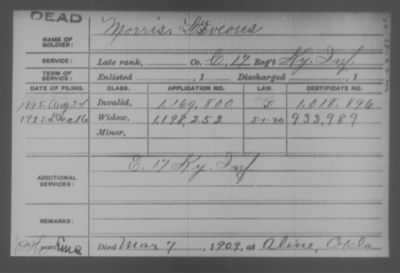 DEAD
NAME OF SOLDIER: Morris,
SERVICE: Late rank, Co. C, 17 Reg't Ky. Inf.
TERM OF SERVICE: Enlisted , 1 Discharged , 1
DATE OF FILING. CLASS. APPLICATION NO. LAW. CERTIFICATE NO.
1895 Aug Invalid, 1,169,800 1,018,896
Dec 16 Widow, 1,198,252 5-1-20 933,989
Minor,
ADDITIONAL SERVICES: E. 17 Ky. Inf
REMARKS:
Died Mar 7, 1909, at Aline, Okla